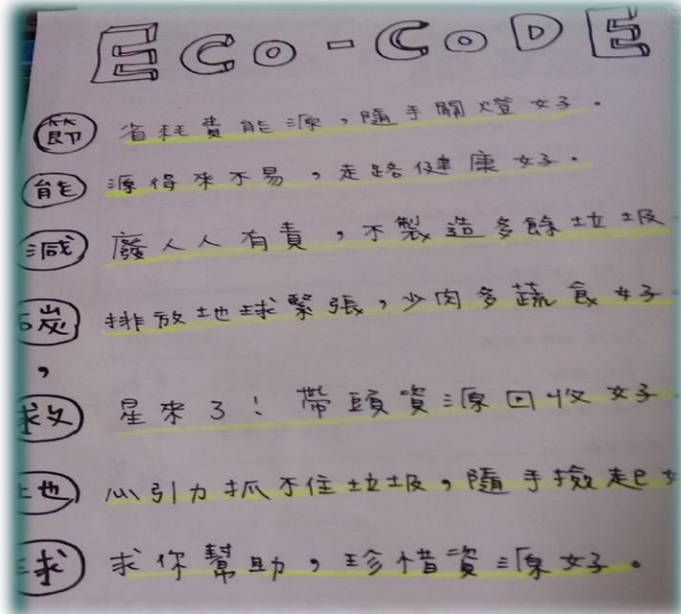 ECO-CODE
節 省耗費能源，隨手關燈好。
能 源得來不易，走路健康好。
減 廢人人有責，不製造多餘垃圾
碳 排放地球緊張，少肉多蔬食好
，
救 星來了！帶頭資源回收好
地 心引力抓不住垃圾，隨手撿起
球 求你幫助，珍惜資源好。